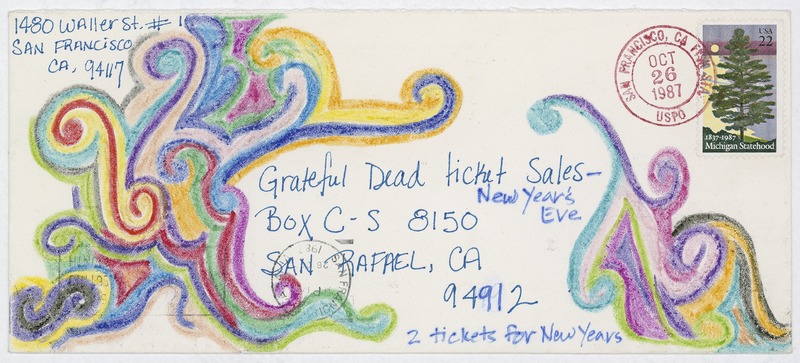 1480 Waller St. # 1
San Francisco
CA, 94117
SAN FRANCISCO, CA
OCT
26
1987
USPO
USA
22
1837-1987
Michigan Statehood
Grateful Dead ticket Sales-
New Year's
Eve
Box C-S 8150
San Rafael, CA
94912
2 tickets for New Years